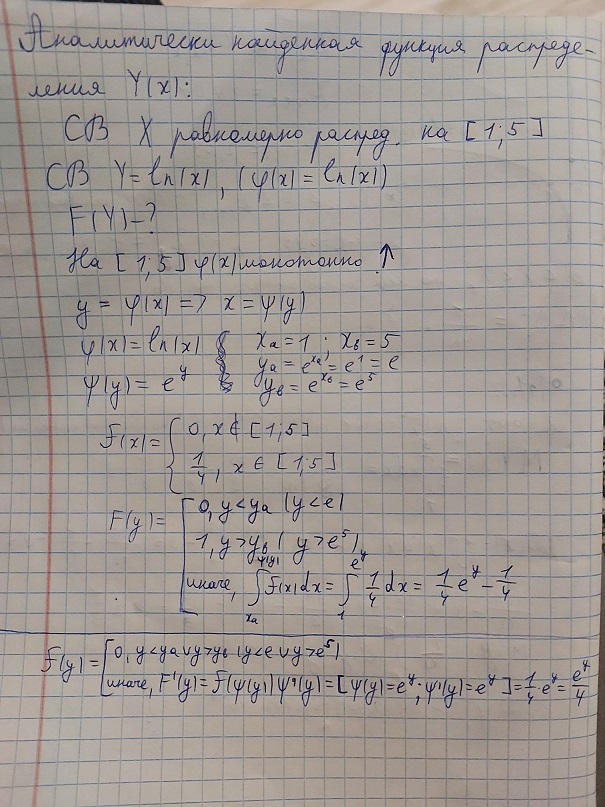 Аналитически найденная функция распреде-
ления Y(x):
СВ X равномерно распред. на [1;5]
СВ Y=ln(x), (φ(x)=ln(x))
F(Y)-?
На [1;5] φ(x) монотонно ↑
y = φ(x) => x = ψ(y)
φ(x) = ln(x) xa = 1 ; xв = 5
ψ(y) = e^y ya = e^xa = e^1 = e
yв = e^xв = e^5
f(x) = { 0, x ∉ [1;5]
1/4, x ∈ [1;5]
F(y) = [ 0, y < ya (y < e)
1, y > yв ( y > e^5)
иначе, ∫_xa^ψ(y) f(x)dx = ∫_1^e^y 1/4 dx = 1/4 e^y - 1/4
f(y) = [ 0, y < ya ∨ y > yв (y < e ∨ y > e^5)
иначе, F'(y) = f(ψ(y))ψ'(y) = [ψ(y) = e^y; ψ'(y) = e^y] = 1/4·e^y = e^y/4